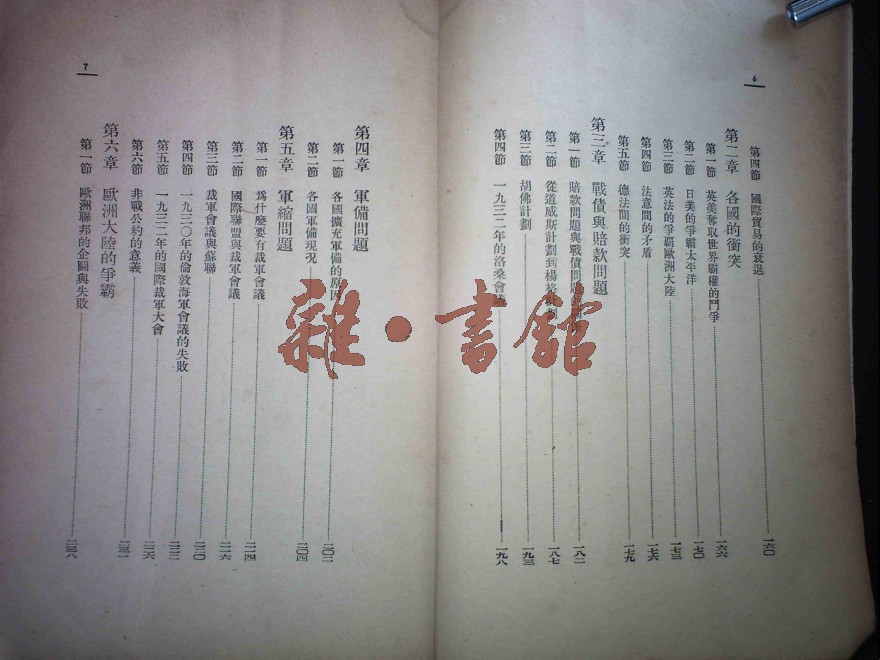 6
第四節 國際貿易的衰退 一六〇
第二章 各國的衝突
第一節 英美奪取世界霸權的鬥爭 一六六
第二節 日美的爭霸太平洋 一七〇
第三節 英法的爭霸歐洲大陸 一七三
第四節 法意間的矛盾 一七六
第五節 德法間的衝突 一七九
第三章 戰債與賠款問題
第一節 賠款問題與戰債問題 一八二
第二節 從道威斯計劃到楊格 一八七
第三節 胡佛計劃 一九三
第四節 一九三二年的洛桑會議 一九八
7
第四章 軍備問題
第一節 各國擴充軍備的原因 二〇二
第二節 各國軍備現況 二〇四
第五章 軍縮問題
第一節 爲什麼要有裁軍會議 二一四
第二節 國際聯盟與裁軍會議 二一六
第三節 裁軍會議與蘇聯 二二〇
第四節 一九三〇年的倫敦海軍會議的失敗
第五節 一九三二年的國際裁軍大會 二二六
第六節 非戰公約的意義
第六章 歐洲大陸的爭霸
第一節 歐洲聯邦的企圖與失敗
雜·書館